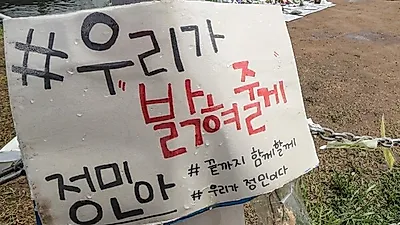 #우리가
"밝혀줄게
정민아
# 끝까지 함께할게
# 우리가 정민이다